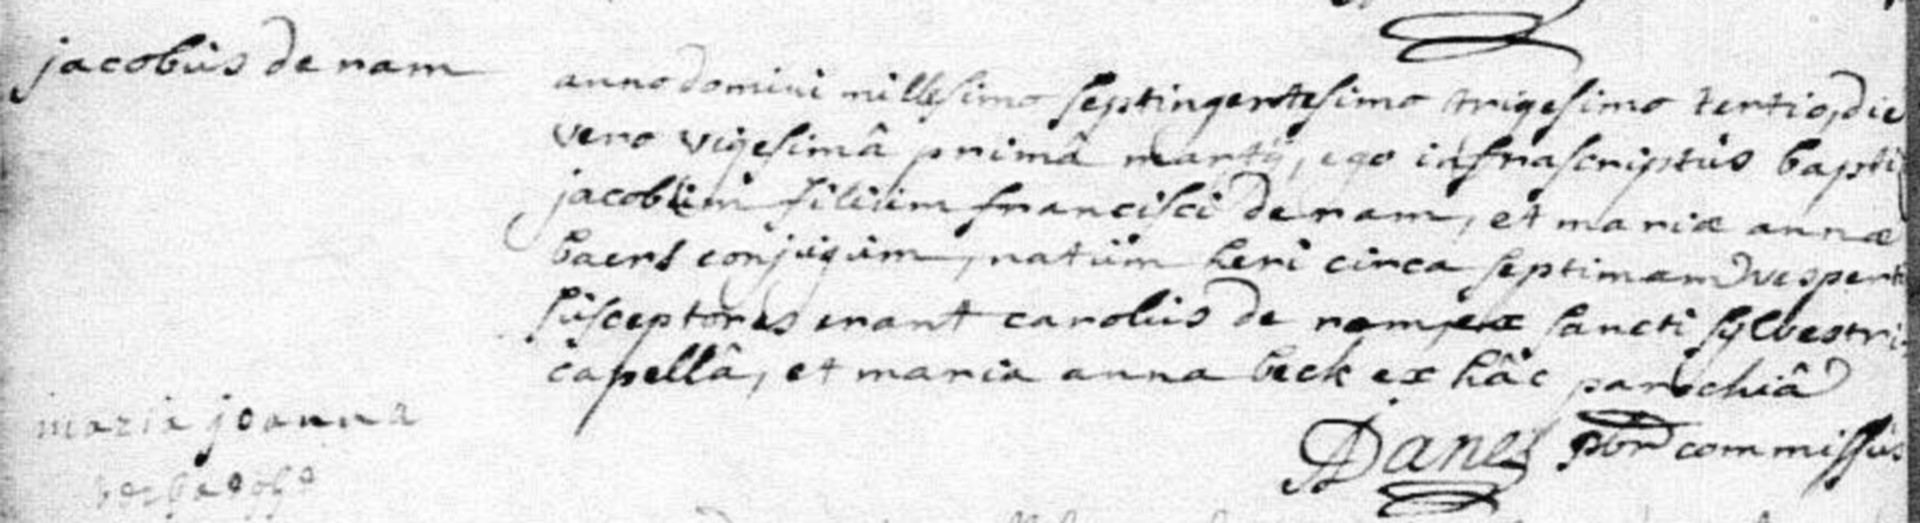 jacobus de ram
anno domini millesimo septingentesimo trigesimo tertio, die
vero vigesimâ primâ martij, ego infrascriptus bapti
jacobum filium francisci de ram, et mariæ annæ
baers conjugum, natum heri circa septimam vespert
susceptores erant carolus de ram ex sancti sylvestri
capellâ, et maria anna beck ex hâc parochiâ
maria joanna
Danes pbr commissus